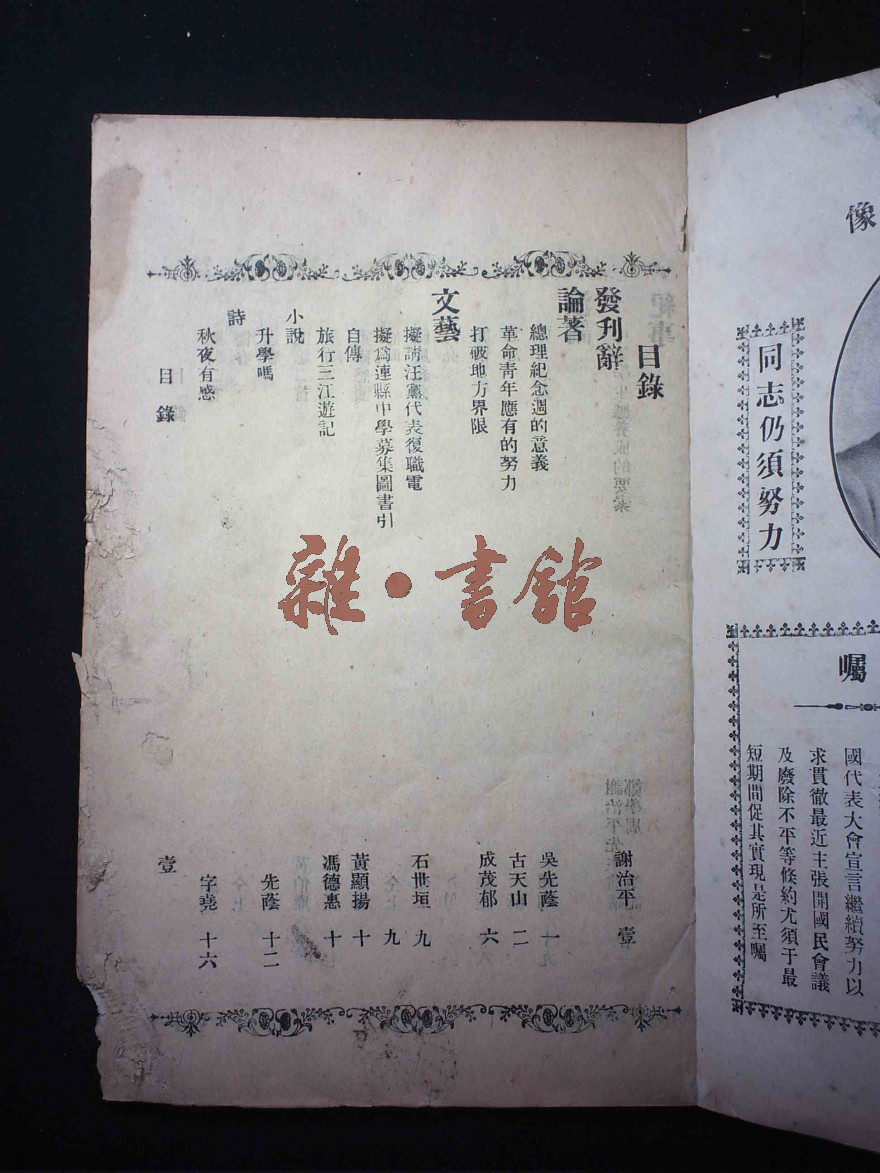 像
同志仍須努力
囑
國代表大會宣言繼續努力以
求貫徹最近主張開國民會議
及廢除不平等條約尤須于最
短期間促其實現是所至囑
目錄
發刋辭 謝治平 壹
論著
總理紀念週的意義 吳先蔭 一
革命靑年應有的努力 古天山 二
打破地方界限 成茂郁 六
文藝
擬請汪黨代表復職電 石世垣 九
擬爲連縣中學募集圖書引 仝上 九
自傳 黃顯揚 十
旅行三江遊記 馮德惠 十
小說
升學嗎 先蔭 十二
詩
秋夜有感 字堯 十六
目錄 壹
雜·書館